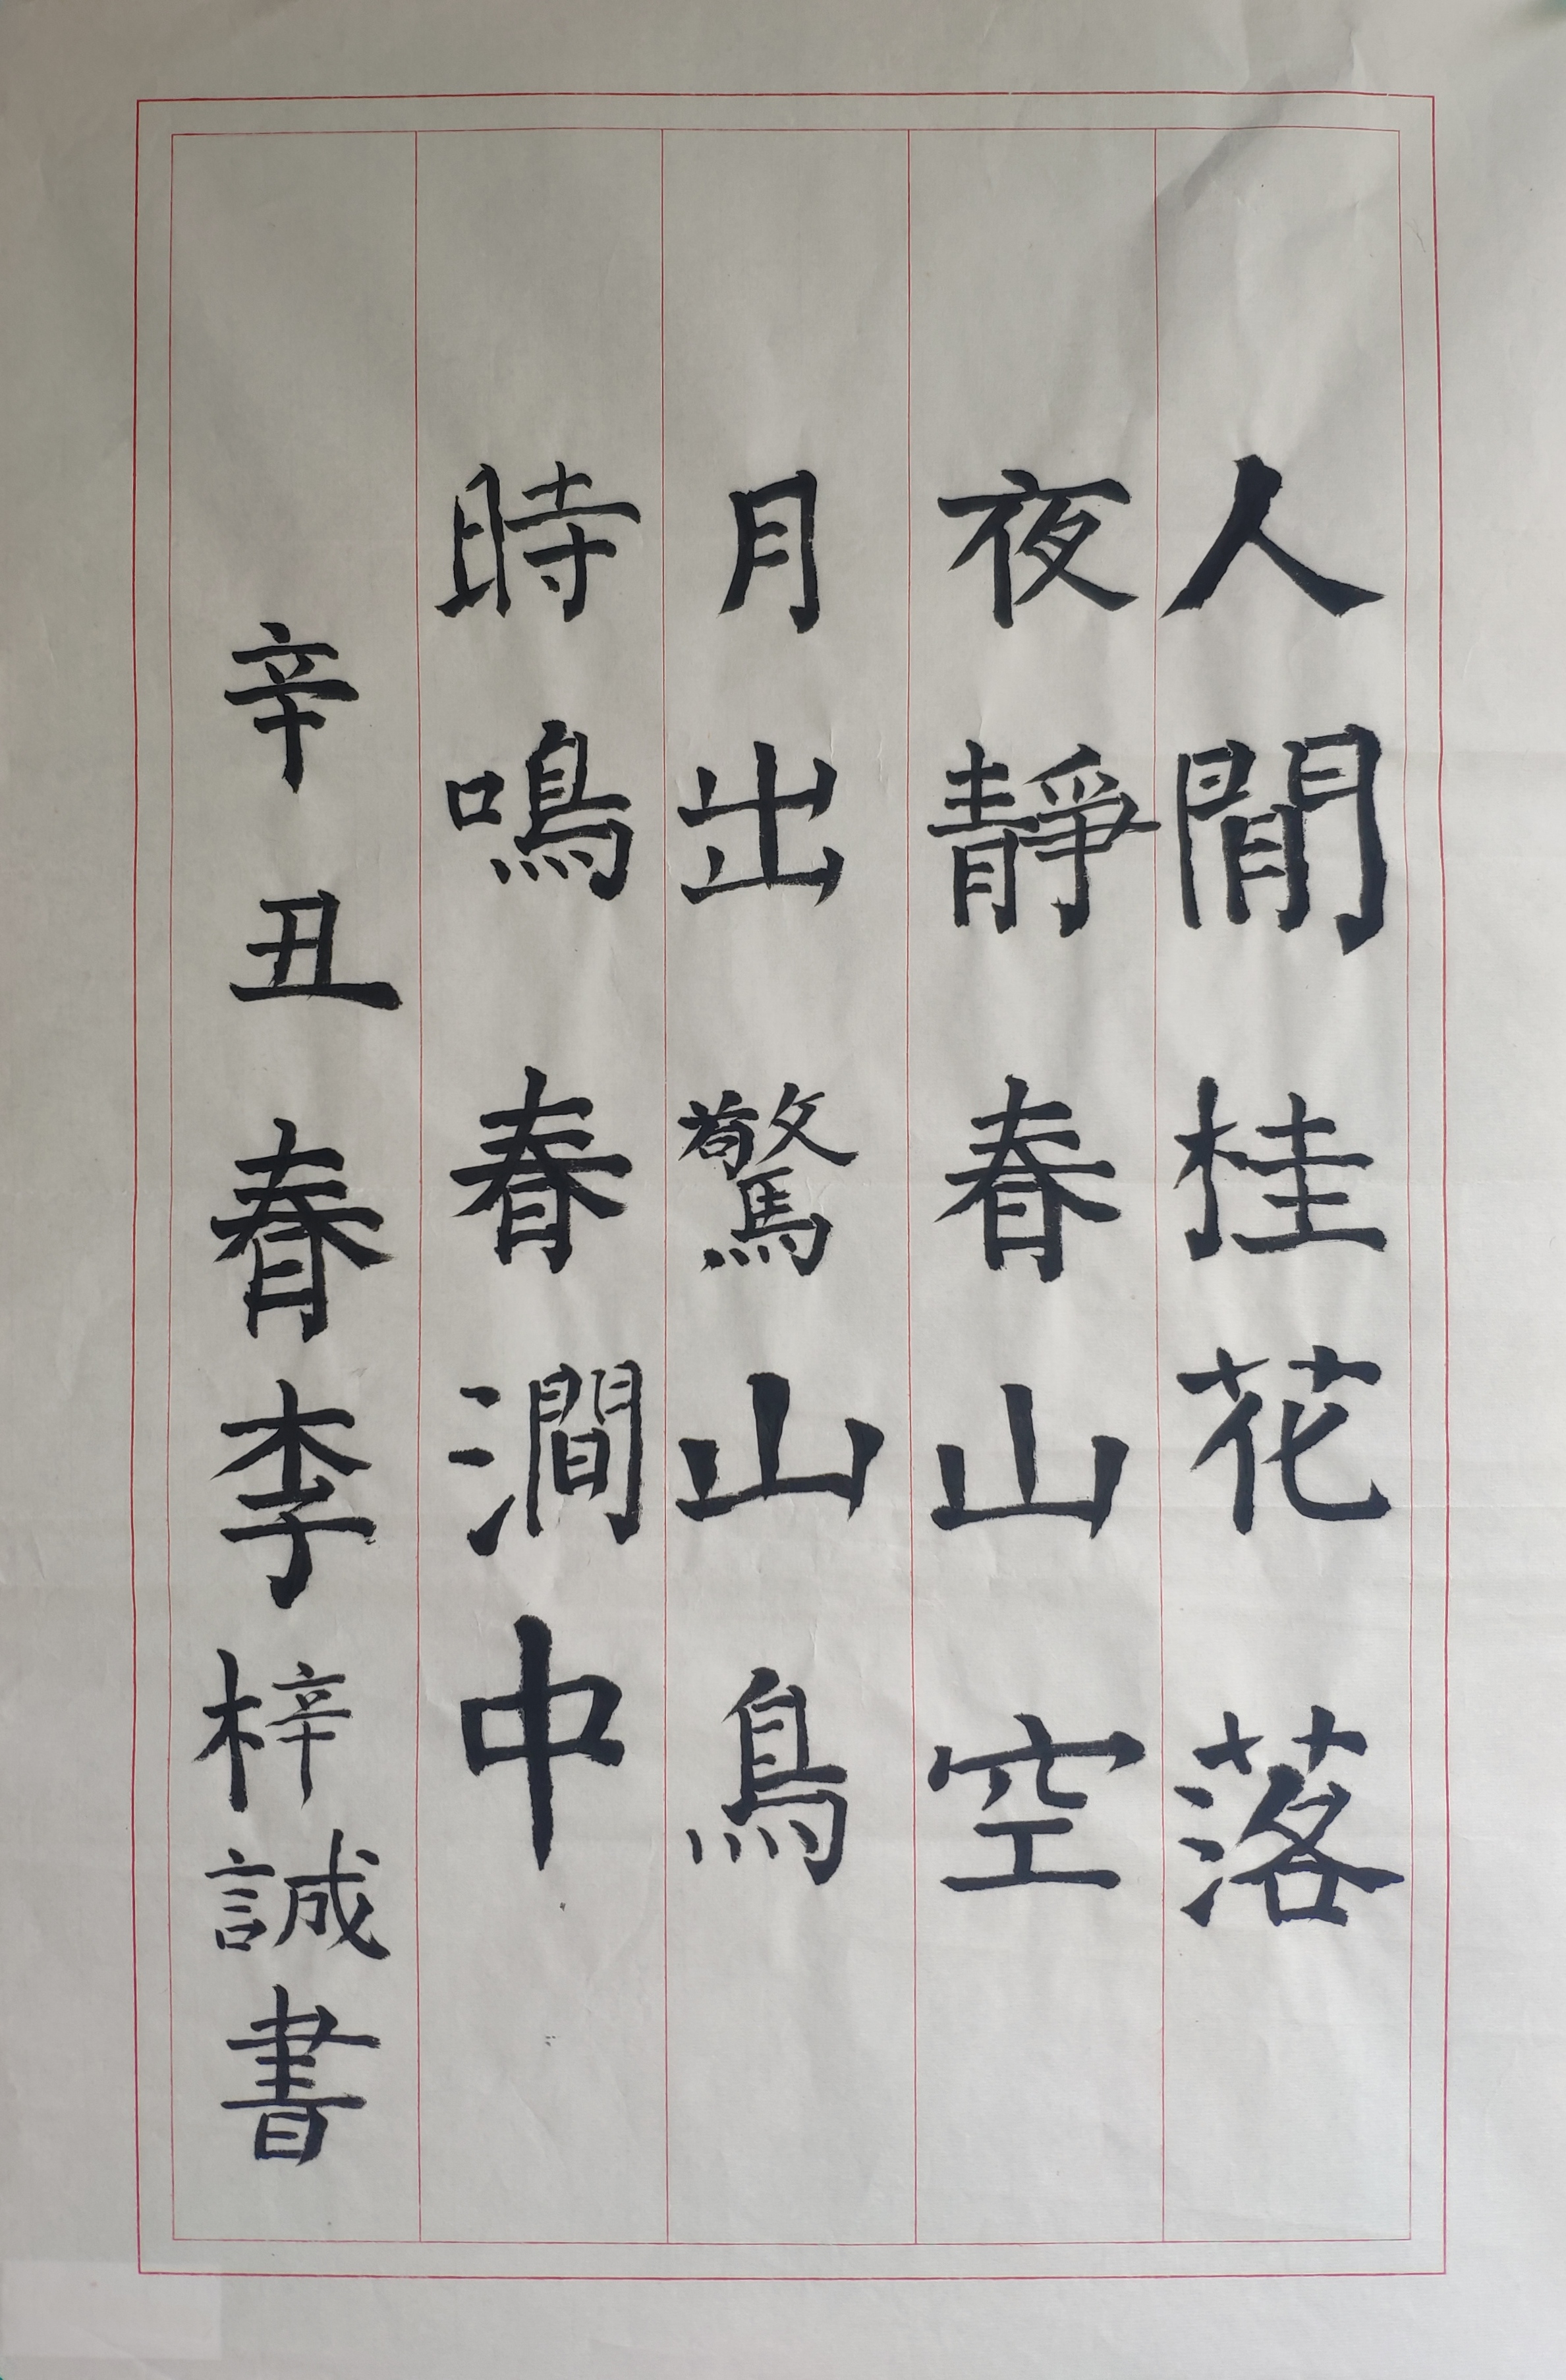 人閒桂花落
夜靜春山空
月出驚山鳥
時鳴春澗中
辛丑春李梓誠書